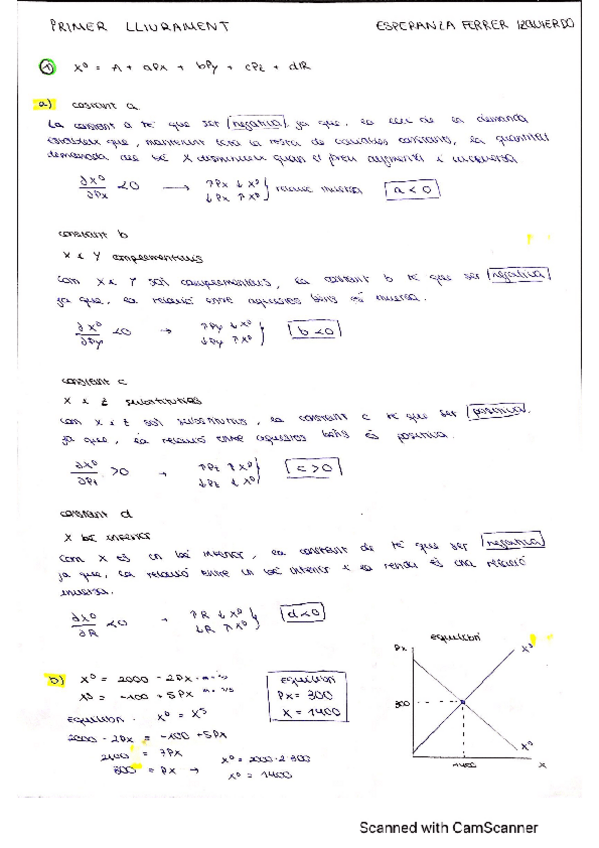 PRIMER LLIURAMENT ESPERANZA FERRER IZQUIERDO
1 X^D = A + aPx + bPy + cPz + dR
a) constant a.
La constant a té que ser negativa, ja que, la llei de la demanda
estableix que, mantenint tota la resta de variables constants, la quantitat
demandada del bé X disminueix quan el preu augmenta i viceversa
∂X^D/∂Px < 0 → ↑Px ↓X^D ↓Px ↑X^D } relació inversa a < 0
constant b
X i Y complementaris
Com X i Y són complementaris, la constant b té que ser negativa
ja que, la relació entre aquestos béns és inversa.
∂X^D/∂Py < 0 → ↑Py ↓X^D ↓Py ↑X^D } b < 0
constant c
X i Z substitutius
Com X i Z són substitutius, la constant c té que ser positiva,
ja que, la relació entre aquestos béns és positiva.
∂X^D/∂Pz > 0 → ↑Pz ↑X^D ↓Pz ↓X^D } c > 0
constant d
X bé inferior
Com X es un bé inferior, la constant de té que ser negativa
ja que, la relació entre un bé inferior i la renda és una relació
inversa.
∂X^D/∂R < 0 → ↑R ↓X^D ↓R ↑X^D } d < 0
b) X^D = 2000 - 2Px
X^S = -100 + 5Px
equilibri. X^D = X^S
2000 - 2Px = -100 + 5Px
2100 = 7Px
300 = Px → X^D = 2000 - 2·300
X^D = 1400
equilibri
Px = 300
X = 1400
equilibri
Px
X^S
300
X^D
1400
X
Scanned with CamScanner